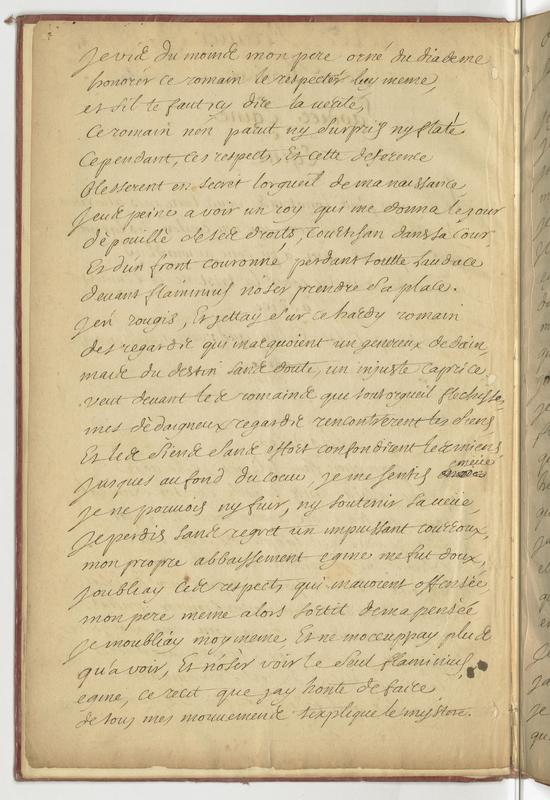 Je vid du moind mon pere orné du diademe
honorer ce romain le respecter luy meme,
et s'il te faut icy dire la verité,
Ce romain non parut ny surpris ny flaté
Cependant, ces respects, Et cette deference
blesserent en secret lorgueil de ma naissance
J'eud peine a voir un roy qui me donna le jour
dépouillé de sed droits, courtisan dans sa Cour
Et d'un front couronné, perdant toutte l'audace
devant flaminius n'oser prendre sa place.
J'en rougis, Et jettay sur ce hardy romain
des regards qui marquoient un genereux dedain,
maid du destin sand doute, un injuste caprice
veut devant led romaind que tout orgueil flechisse,
mes dédaigneux regards rencontrerent les siens
Et led siend sand effort confondirent led miens
Jusques au fond du coeur je me sentis emeüe
Je ne pouvois ny fuir, ny soutenir sa veüe,
Je perdis sand regret un impuissant couroux,
mon propre abbaissement egine me fut doux,
J'oubliay ced respects qui m'avoient offensée
mon pere meme alors sortit de ma pensée
Je m'oubliay moy meme Et ne m'occuppay plud
qu'a voir, Et n'oser voir le seul flaminius,
egine, ce recit que j'ay honte de faire
de tous mes mouvemend t'explique le mystere.